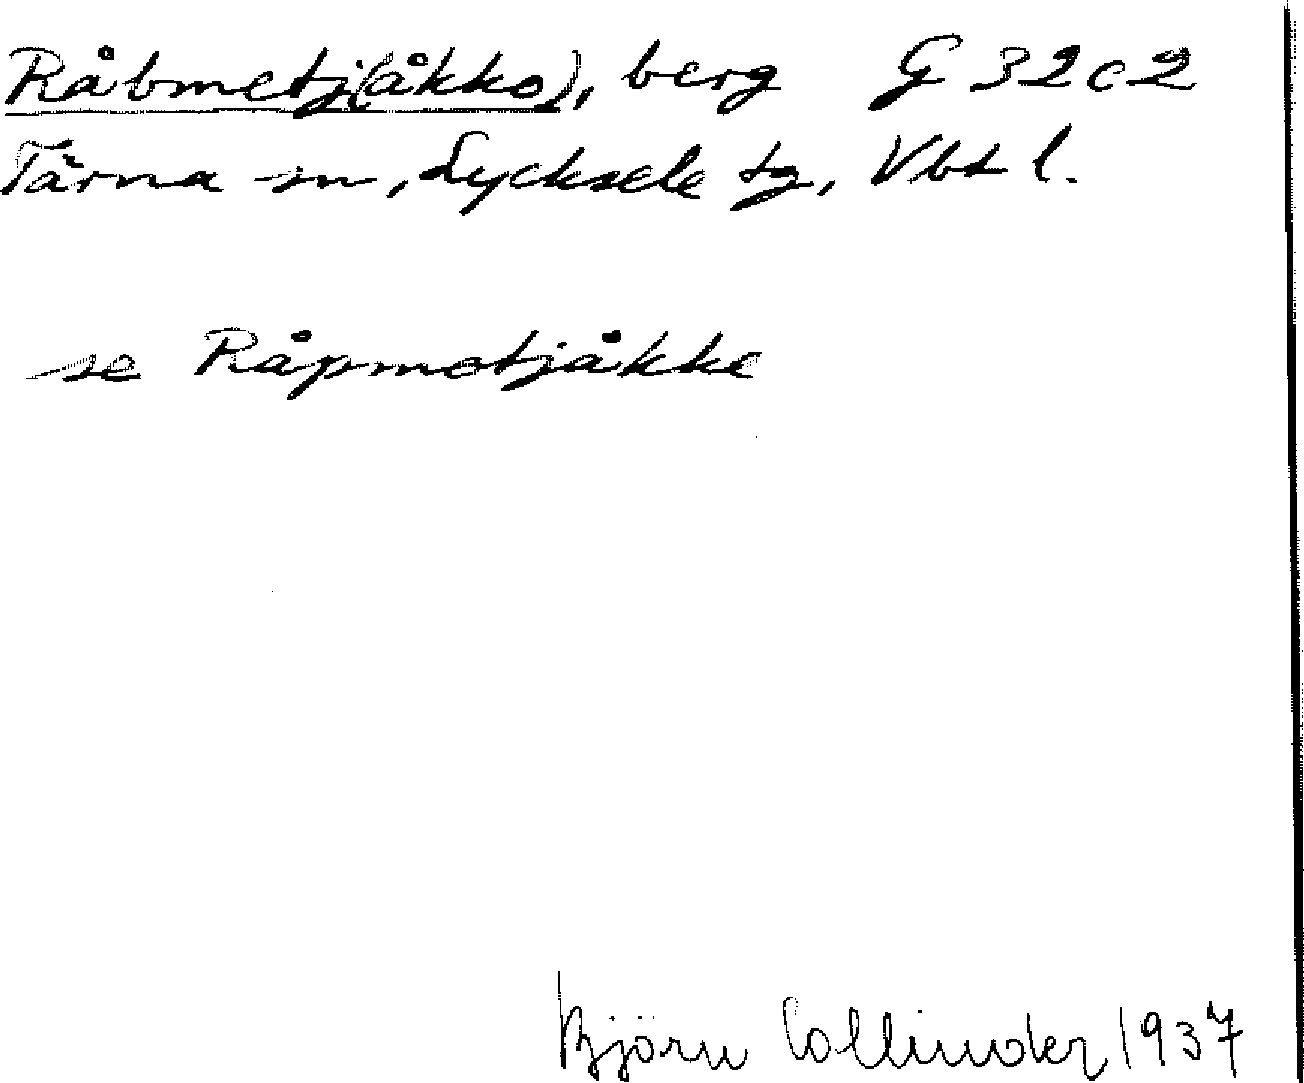 Råbmetj(åkko), berg G 32c2
Tärna sn, Lycksele tg, Vbt l.
se Råpmetjåkke
Björn Collinder 1937